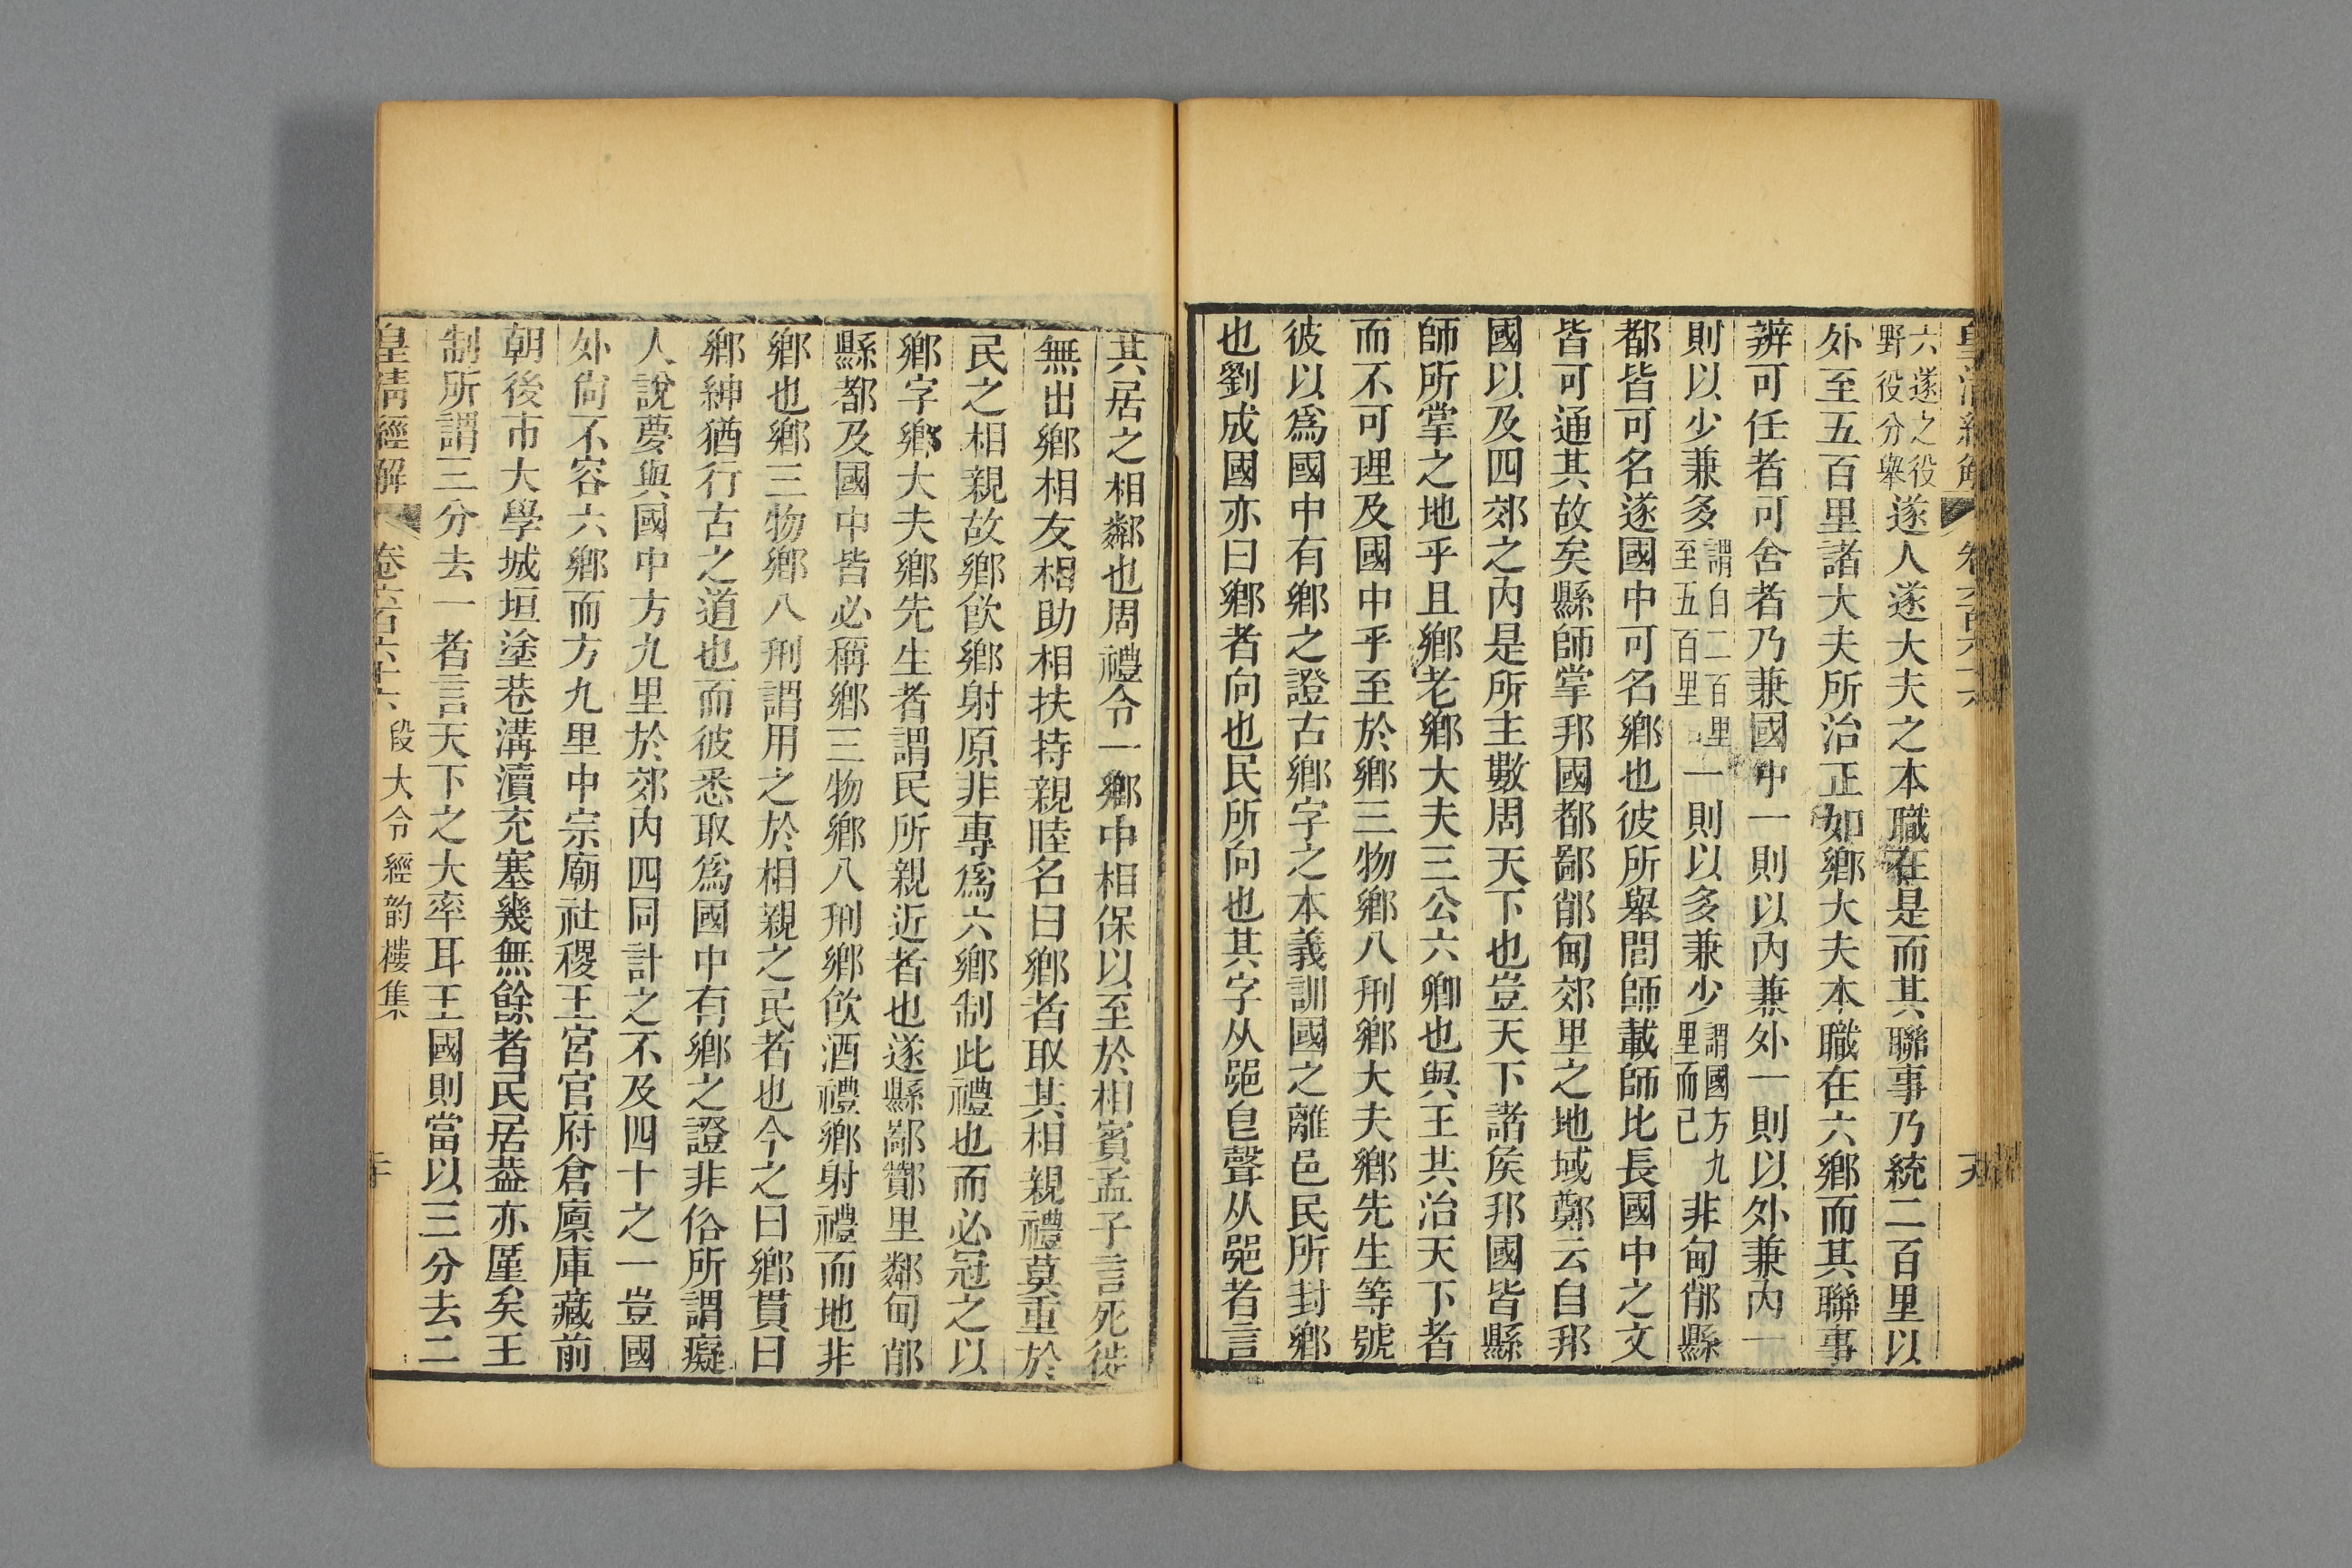 皇清經解 卷六百六十六
六遂之役野役分舉遂人遂大夫之本職在是而其聯事乃統二百里以
外至五百里諸大夫所治正如鄉大夫本職在六鄉而其聯事
辨可任者可舍者乃兼國中一則以内兼外一則以外兼内一
則以少兼多謂自二百里至五百里一則以多兼少謂國方九里而已非甸郙縣
都皆可名遂國中可名鄉也彼所舉閭師載師比長國中之文
皆可通其故矣縣師掌邦國都鄙郙甸郊里之地域鄭云自邦
國以及四郊之内是所主數周天下也豈天下諸矦邦國皆縣
師所掌之地乎且鄉老鄉大夫三公六卿也與王共治天下者
而不可理及國中乎至於鄉三物鄉八刑鄉大夫鄉先生等號
彼以爲國中有鄉之證古鄉字之本義訓國之離邑民所封鄉
也劉成國亦曰鄉者向也民所向也其字从𨛜皀聲从𨛜者言
其居之相鄰也周禮令一鄉中相保以至於相賓孟子言死徙
無出鄉相友相助相扶持親睦名曰鄉者取其相親禮莫重於
民之相親故鄉飲鄉射原非專爲六鄉制此禮也而必冠之以
鄉字鄉大夫鄉先生者謂民所親近者也遂縣鄙酇里鄰甸郙
縣都及國中皆必稱鄉三物鄉八刑鄉飲酒禮鄉射禮而地非
鄉也鄉三物鄉八刑謂用之於相親之民者也今之曰鄉貫曰
鄉紳猶行古之道也而彼悉取爲國中有鄉之證非俗所謂癡
人說夢與國中方九里於郊内四同計之不及四十之一豈國
外尙不容六鄉而方九里中宗廟社稷王宮官府倉廩庫藏前
朝後市大學城垣塗巷溝瀆充塞幾無餘者民居葢亦厪矣王
制所謂三分去一者言天下之大率耳王國則當以三分去二
皇清經解 卷六百六十六 段大令經韵樓集 二十